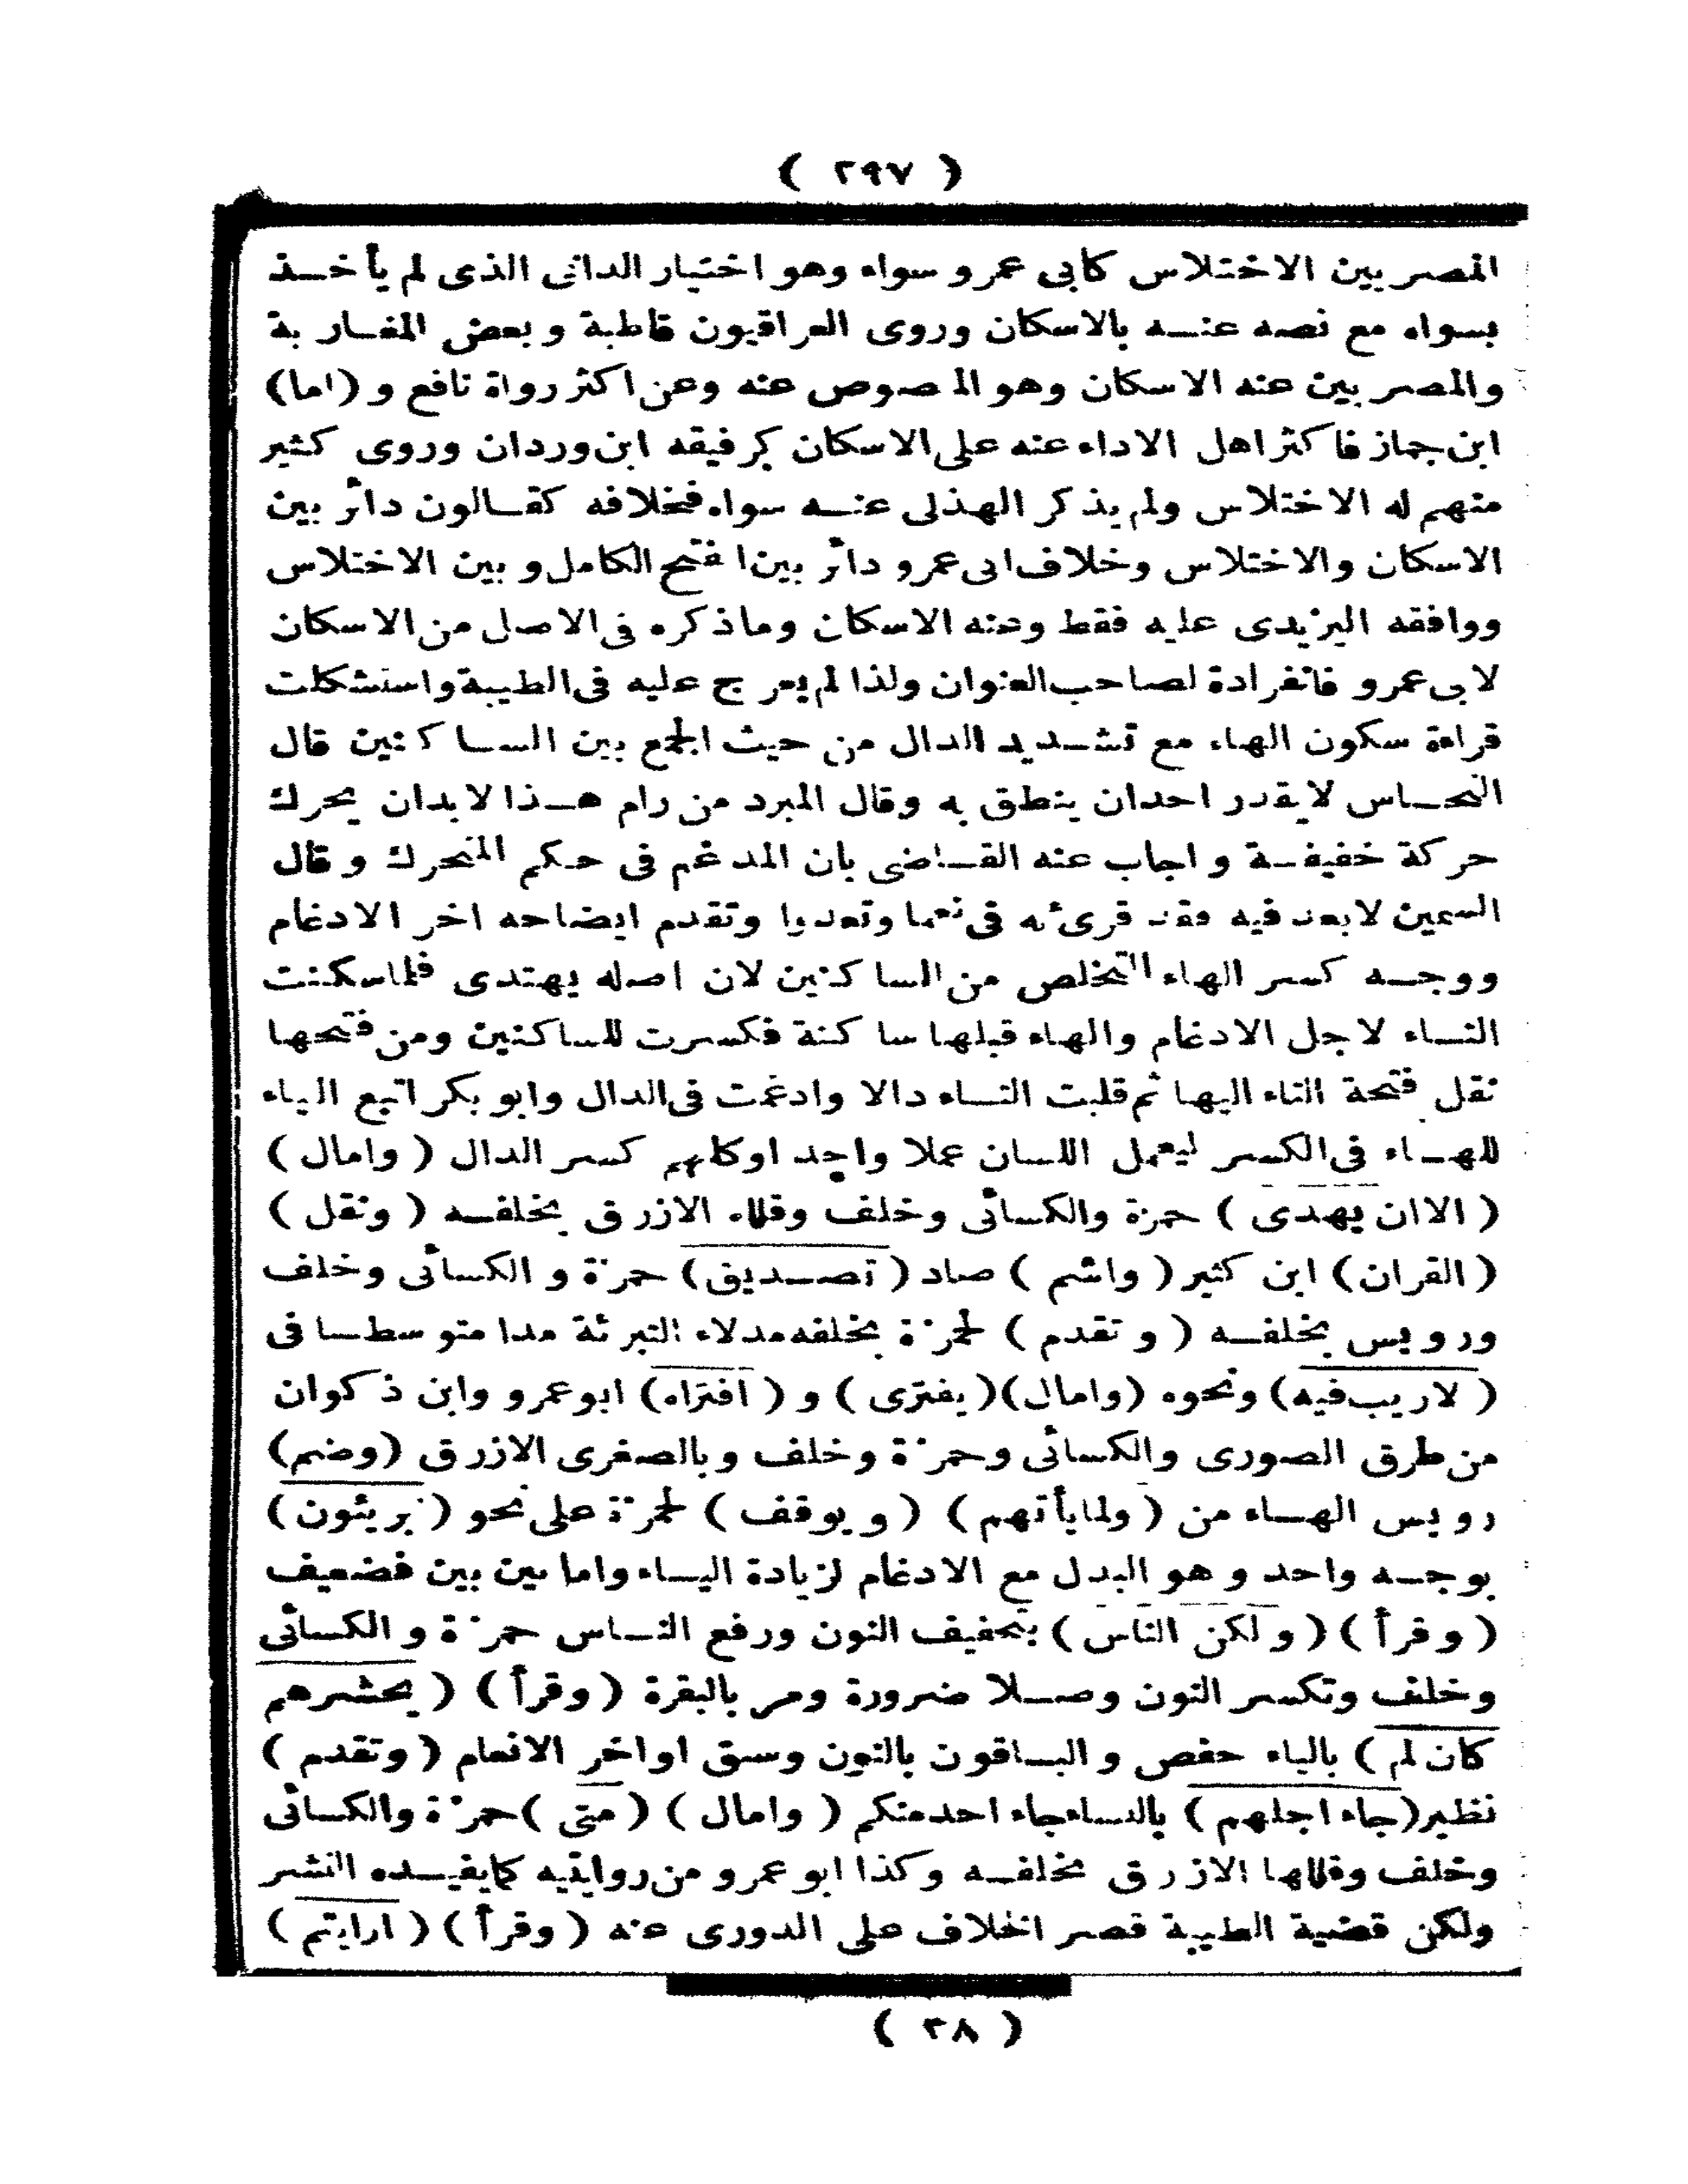 ( ٢٩٧ )
المصريين الاختلاس كابى عمرو سواء وهو اختيار الدانى الذى لم يأخذ
بسواه مع نصه عنه بالاسكان وروى العراقيون قاطبة وبعض المغاربة
والمصريين عنه الاسكان وهو المنصوص عنه وعن اكثر رواة نافع و (اما)
ابن جماز فاكثر اهل الاداء عنه على الاسكان كرفيقه ابن وردان وروى كثير
منهم له الاختلاس ولم يذكر الهذلى عنه سواه فخلافه كقالون دائر بين
الاسكان والاختلاس وخلاف ابى عمرو دائر بين الفتح الكامل وبين الاختلاس
ووافقه اليزيدى عليه فقط وعنه الاسكان وماذكره فى الاصل من الاسكان
لابى عمرو فانفرادة لصاحب العنوان ولذا لم يعرج عليه فى الطيبة واستشكلت
قراءة سكون الهاء مع تشديد الدال من حيث الجمع بين الساكنين قال
النحاس لايقدر احدان ينطق به وقال المبرد من رام هذا لابدان يحرك
حركة خفيفة واجاب عنه القاضى بان المدغم فى حكم المتحرك وقال
السمين لابعد فيه فقد قرئ به فى نعما وتعدوا وتقدم ايضاحه اخر الادغام
ووجه كسر الهاء التخلص من الساكنين لان اصله يهتدى فلما سكنت
التاء لاجل الادغام والهاء قبلها ساكنة فكسرت للساكنين ومن فتحها
نقل فتحة التاء اليها ثم قلبت التاء دالا وادغمت فى الدال وابو بكر اتبع الياء
للهاء فى الكسر ليعمل اللسان عملا واحد اوكلهم كسر الدال ( وامال )
( الاان يهدى ) حمزة والكسائى وخلف وقلله الازرق بخلفه ( ونقل )
( القران ) ابن كثير ( واشم ) صاد ( تصديق ) حمزة والكسائى وخلف
ورويس بخلفه ( وتقدم ) لحمزة بخلفه مدلاء التبرئة مدا متوسطا فى
( لاريب فيه ) ونحوه (وامال) ( يفترى ) و ( افتراه ) ابو عمرو وابن ذكوان
من طرق الصورى والكسائى وحمزة وخلف وبالصغرى الازرق (وضم)
رويس الهاء من ( ولمايأتهم ) ( ويوقف ) لحمزة على نحو ( بريئون )
بوجه واحد وهو البدل مع الادغام لزيادة الياء واما بين بين فضعيف
( وقرأ ) ( ولكن الناس ) بتخفيف النون ورفع الناس حمزة والكسائى
وخلف وتكسر النون وصلا ضرورة ومر بالبقرة ( وقرأ ) ( يحشرهم
كان لم ) بالياء حفص والباقون بالنون وسبق اواخر الانعام ( وتقدم )
نظير ( جاء اجلهم ) بالنساء جاء احد منكم ( وامال ) ( متى ) حمزة والكسائى
وخلف وقللها الازرق بخلفه وكذا ابو عمرو من روايتيه كمايفيده النشر
ولكن قضية الطيبة قصر الخلاف على الدورى عنه ( وقرأ ) ( ارايتم )
( ٣٨ )